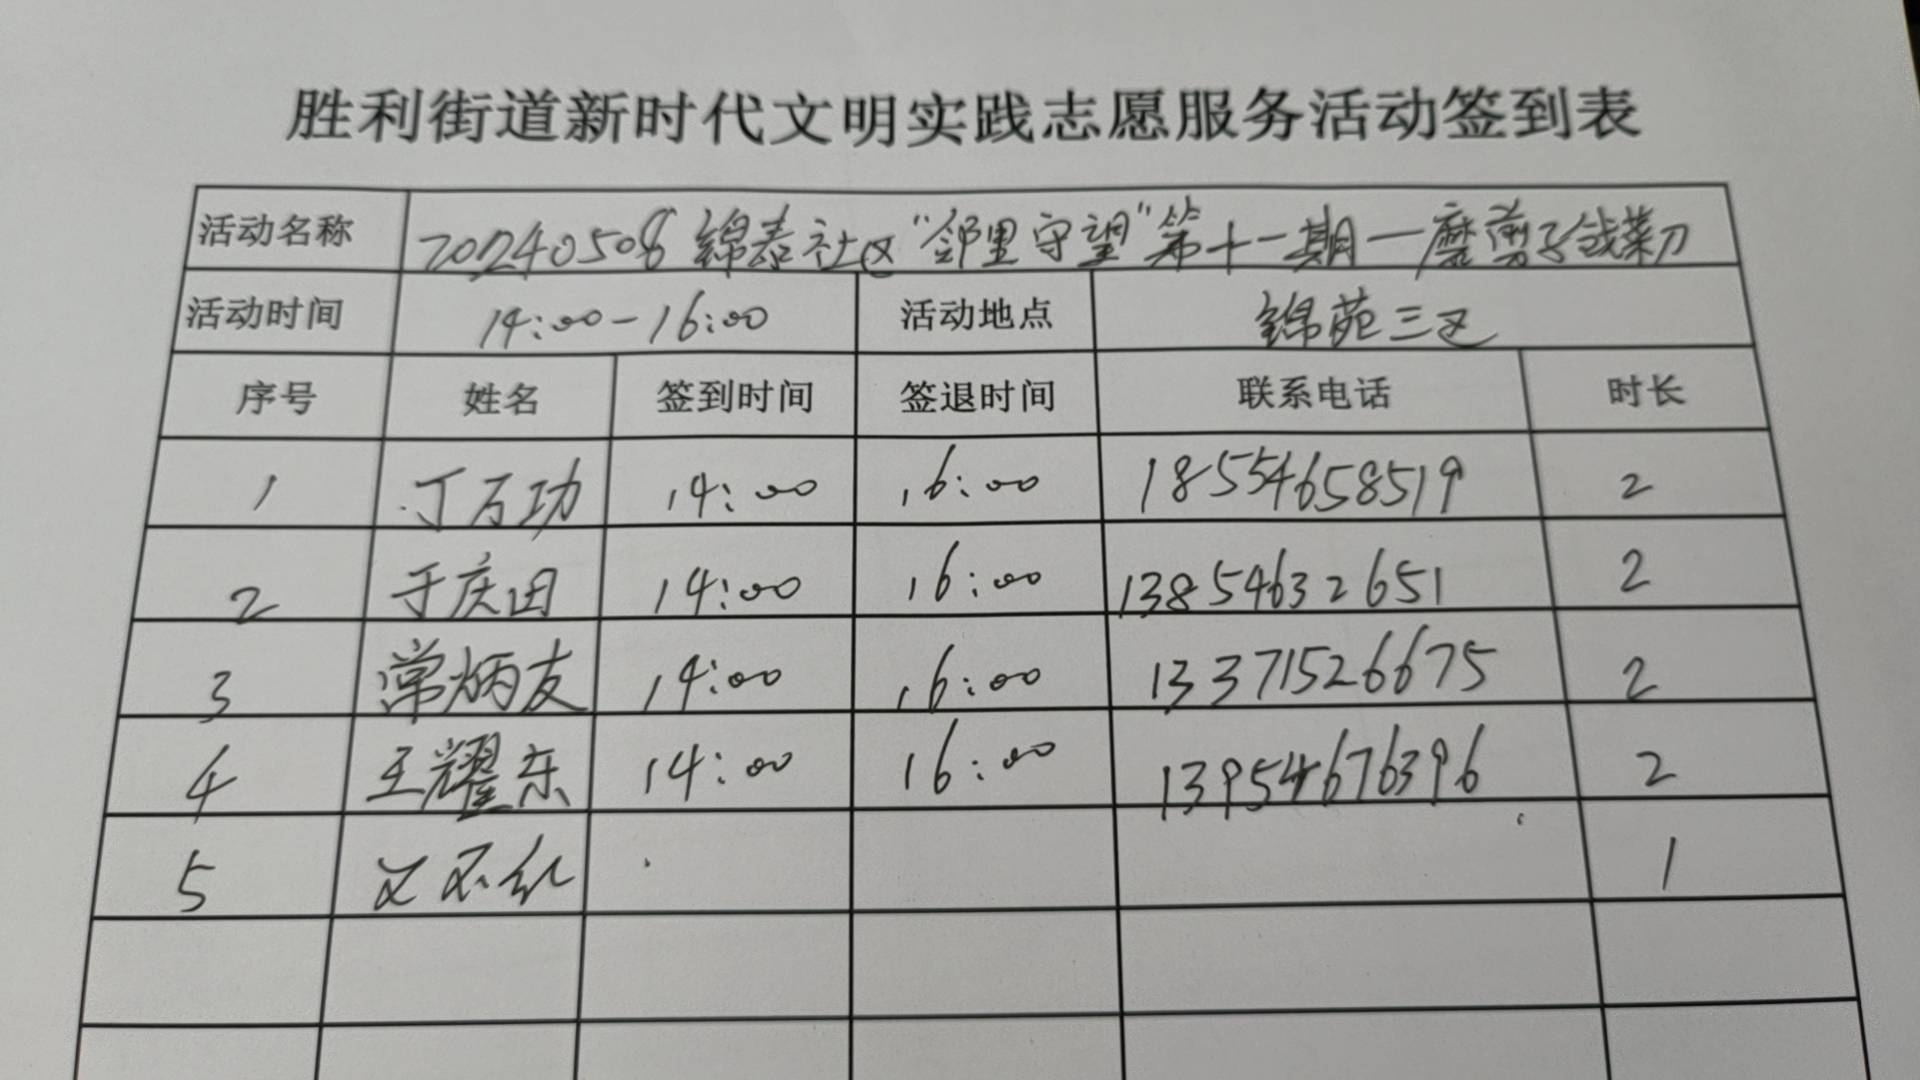 胜利街道新时代文明实践志愿服务活动签到表
活动名称 20240508 锦泰社区“邻里守望”第十一期—磨剪子戗菜刀
活动时间 14:00-16:00 活动地点 锦苑三区
序号 姓名 签到时间 签退时间 联系电话 时长
1 丁万功 14:00 16:00 18554658519 2
2 于庆田 14:00 16:00 13854632651 2
3 常炳友 14:00 16:00 13371526675 2
4 王耀东 14:00 16:00 13954676396 2
5 1